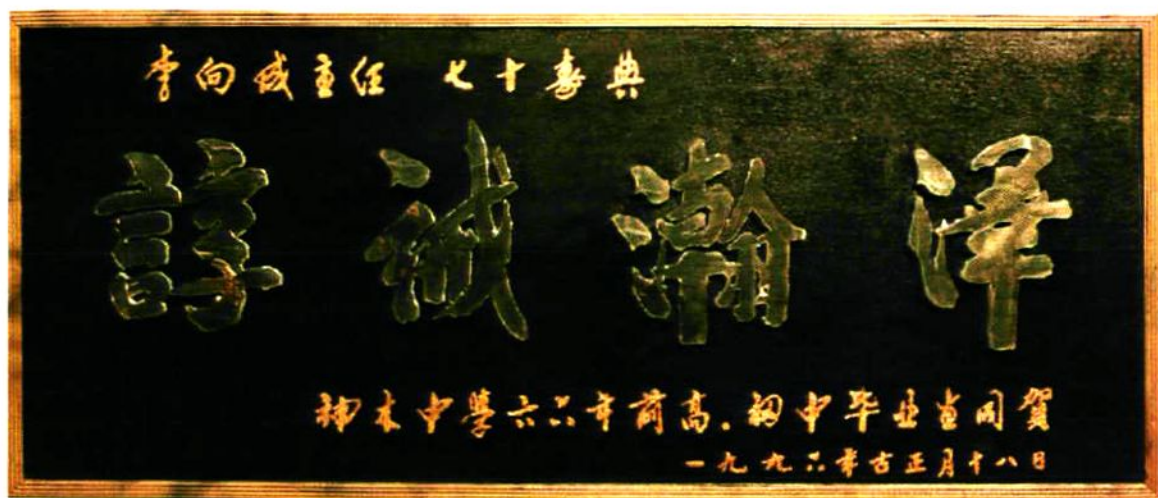 李向成主任 七十寿典
諄诚瀚泽
神木中學六六年前高.初中毕业生同賀
一九九六年古正月十八日